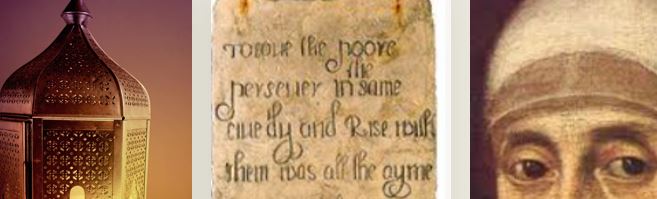 TO LOUE the poore
the
perseuer in same
liue dy and Rise with
them was all the ayme